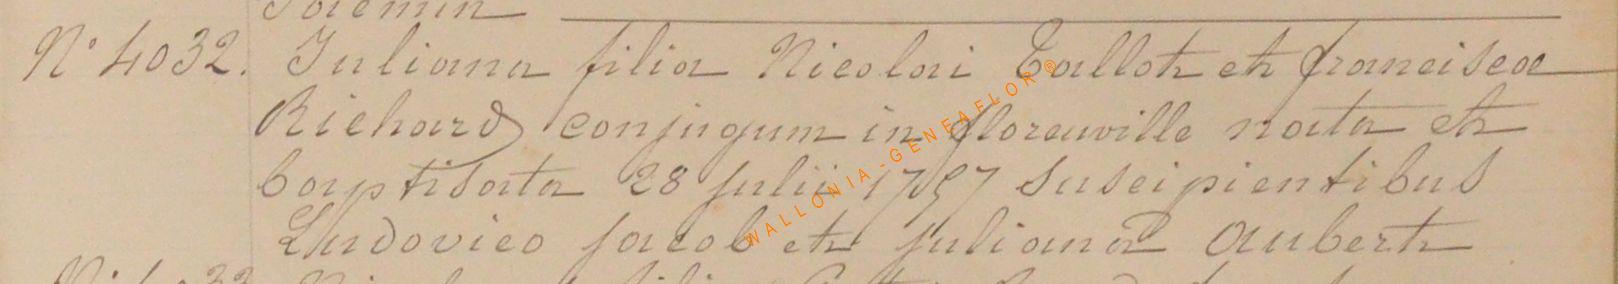 Joremin
N° 4032. Juliana filia Nicolai Tallot et francisca
Richard conjugum in florenville nata et
baptisata 28 julii 1757 suscipientibus
Ludovico jacob et juliana aubert
WALLONIA-GENEAFLOR®